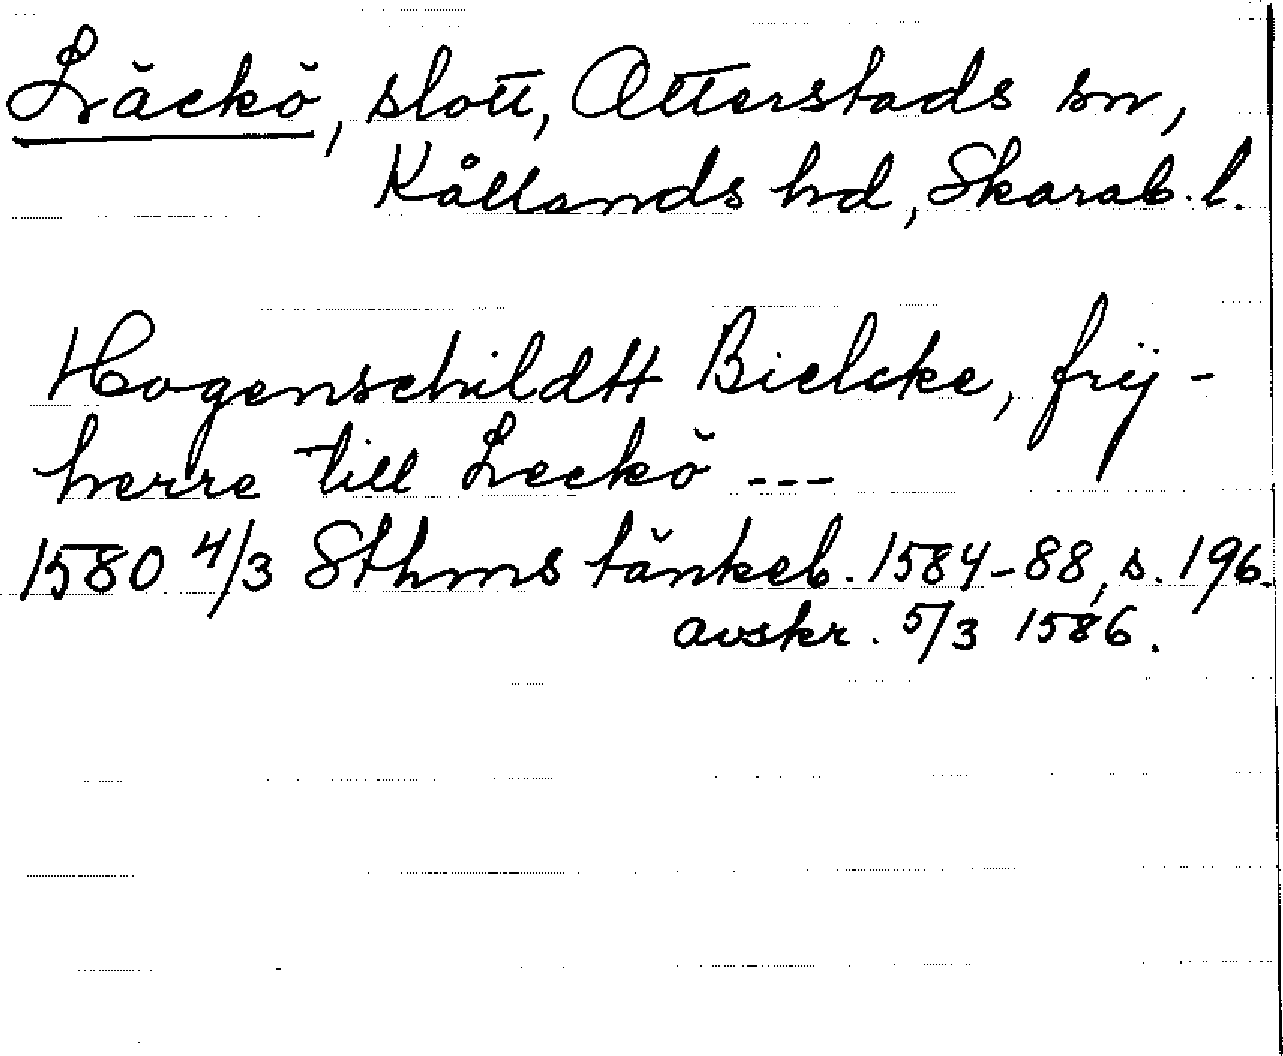 Läckö, slott, Otterstads sn,
Kållands hd, Skarab. l.
Hogenschildtt Bielcke, frij-
herre till Leckö ---
1580 4/3 Sthms tänkeb. 1584-88, s. 196.
avskr. 5/3 1586.